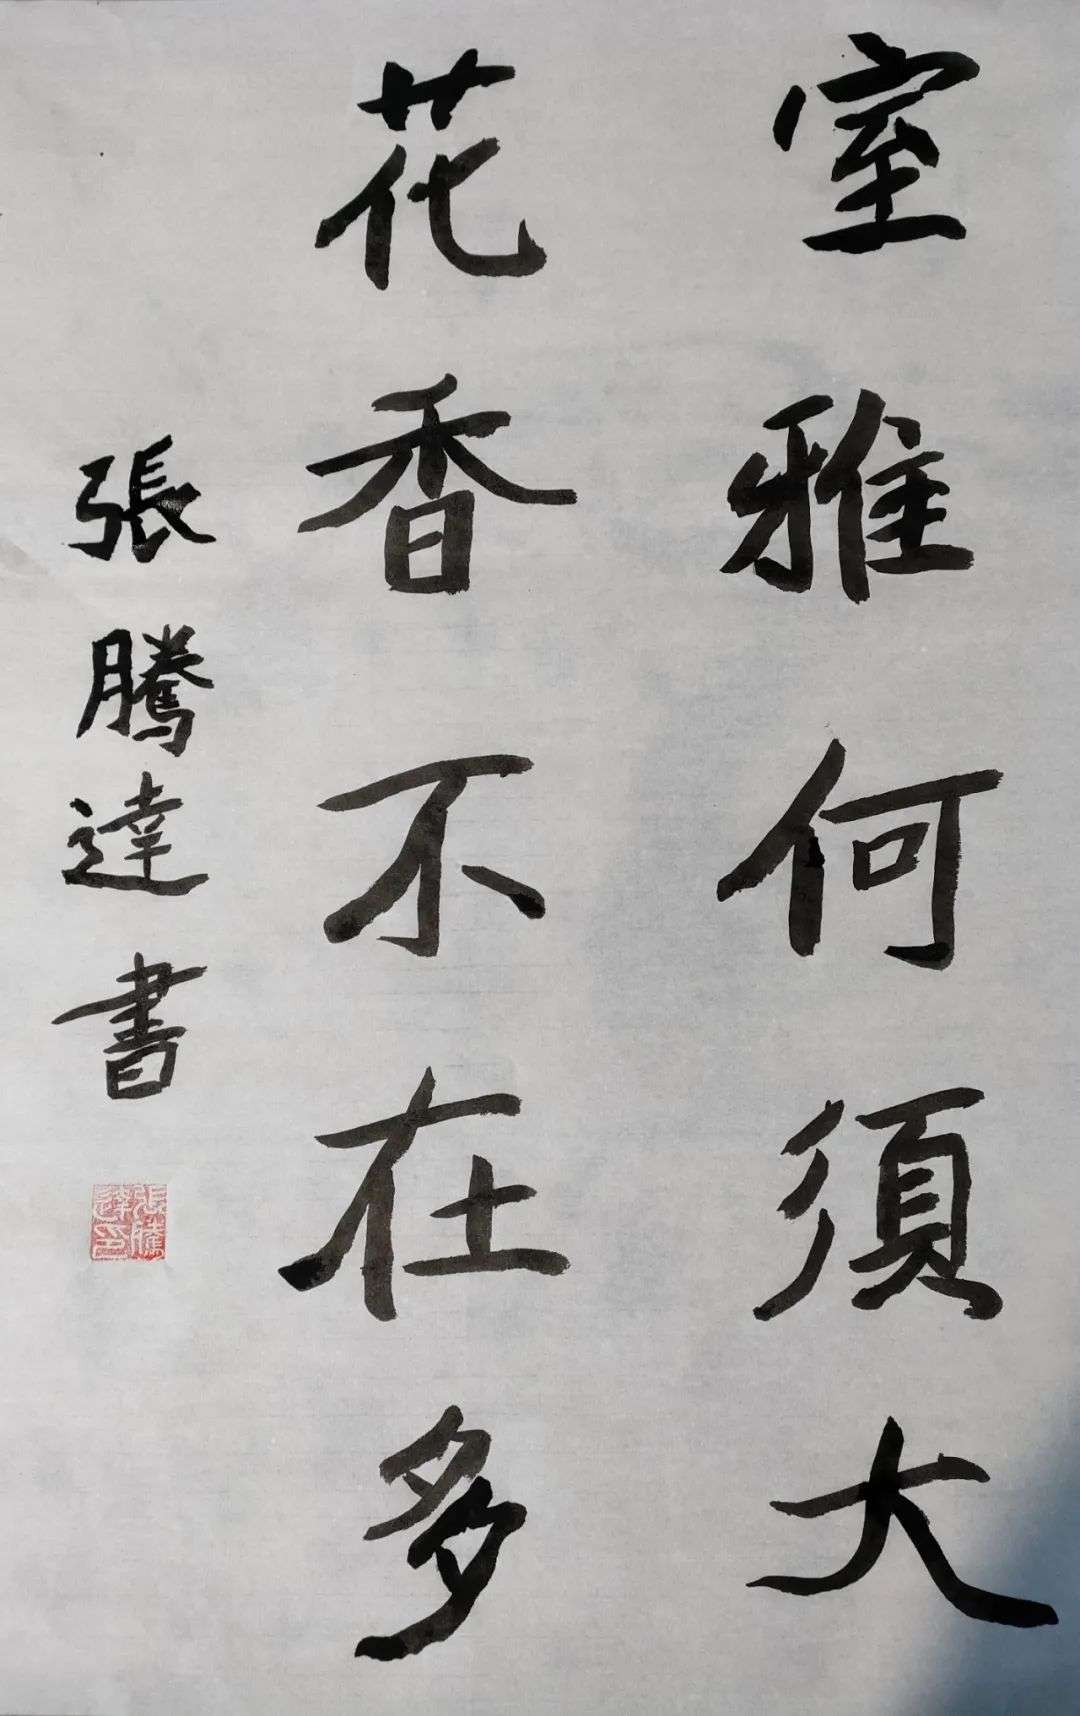 室雅何須大
花香不在多
張騰達書
張騰達印